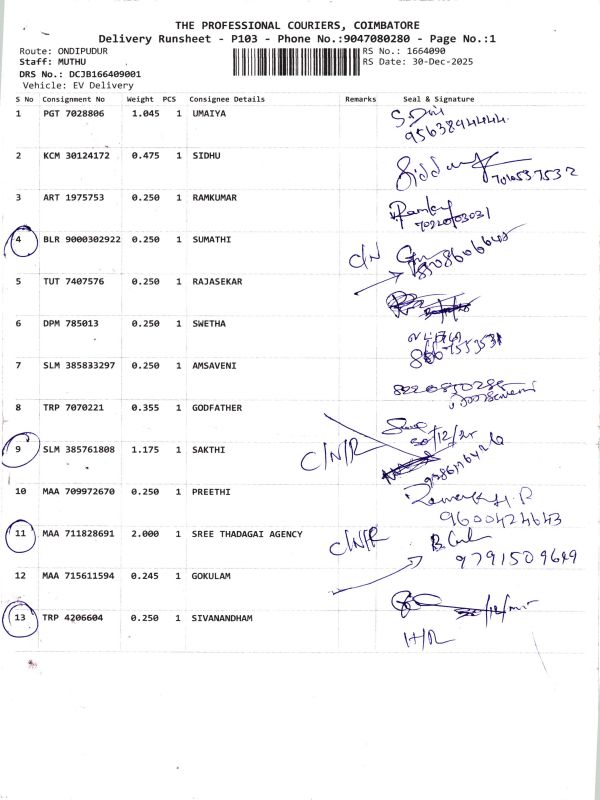 THE PROFESSIONAL COURIERS, COIMBATORE
Delivery Runsheet - P103 - Phone No.:9047080280 - Page No.:1
Route: ONDIPUDUR RS No.: 1664090
Staff: MUTHU RS Date: 30-Dec-2025
DRS No.: DCJB166409001
Vehicle: EV Delivery
S No Consignment No Weight PCS Consignee Details Remarks Seal & Signature
1 PGT 7028806 1.045 1 UMAIYA
9563894444
2 KCM 30124172 0.475 1 SIDHU
3 ART 1975753 0.250 1 RAMKUMAR
4 BLR 9000302922 0.250 1 SUMATHI C/N
5 TUT 7407576 0.250 1 RAJASEKAR
6 DPM 785013 0.250 1 SWETHA
7 SLM 385833297 0.250 1 AMSAVENI
8 TRP 7070221 0.355 1 GODFATHER
30/12/25
9 SLM 385761808 1.175 1 SAKTHI C/N/R
10 MAA 709972670 0.250 1 PREETHI
9600424643
11 MAA 711828691 2.000 1 SREE THADAGAI AGENCY C/N/R
9791509649
12 MAA 715611594 0.245 1 GOKULAM
13 TRP 4206604 0.250 1 SIVANANDHAM
H/R